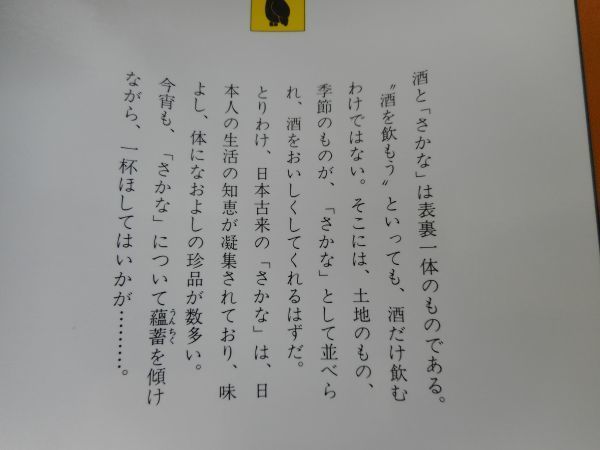 酒と「さかな」は表裏一体のものである。
〝酒を飲もう〟といっても、酒だけ飲む
わけではない。そこには、土地のもの、
季節のものが、「さかな」として並べら
れ、酒をおいしくしてくれるはずだ。
とりわけ、日本古来の「さかな」は、日
本人の生活の知恵が凝集されており、味
よし、体になおよしの珍品が数多い。
今宵も、「さかな」について蘊蓄を傾け
うんちく
ながら、一杯ほしてはいかが………。